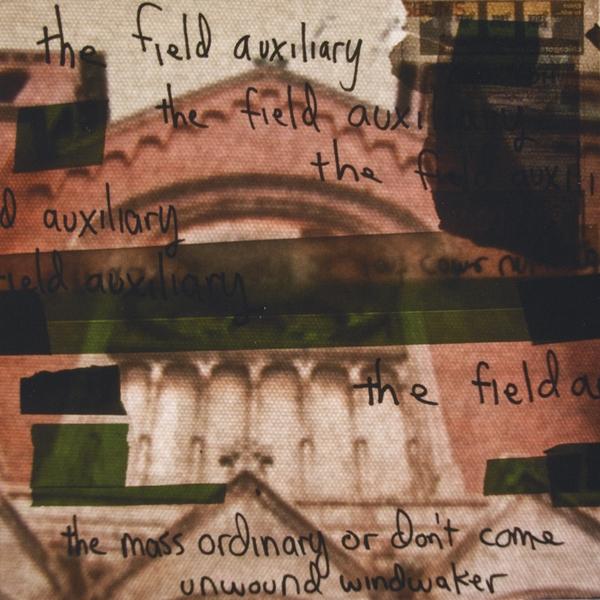 the field auxiliary
the field auxiliary
the field auxili
d auxiliary
field auxiliary
the field a
the mass ordinary or don't come
unwound windwaker